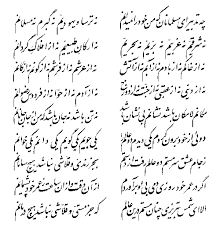 چه تدبیر ای مسلمانان که من خود را نمیدانم نه ترسا و یهودیم نه گبرم نه مسلمانم
نه شرقیم نه غربیم نه بریم نه بحریم نه ارکان طبیعیم نه از افلاک گردانم
نه از خاکم نه از بادم نه از آبم نه از آتش نه از عرشم نه از فرشم نه از کونم نه از کانم
نه از دنیا نه از عقبی نه از جنت نه از دوزخ نه از آدم نه از حوا نه از فردوس رضوانم
مکانم لامکان باشد نشانم بی نشان باشد نه تن باشد نه جان باشد که من از جان جانانم
دویی از خود برون کردم یکی دیدم دو عالم را یکی جویم یکی گویم یکی دانم یکی خوانم
ز جام عشق سرمستم دو عالم رفت از دستم بجز رندی و قلاشی نباشد هیچ سامانم
اگر در عمر خود روزی دمی بی او برآوردم از آن وقت و از آن ساعت ز عمر خود پشیمانم
الا ای شمس تبریزی چنان مستم درین عالم که جز مستی و قلاشی نباشد هیچ درمانم